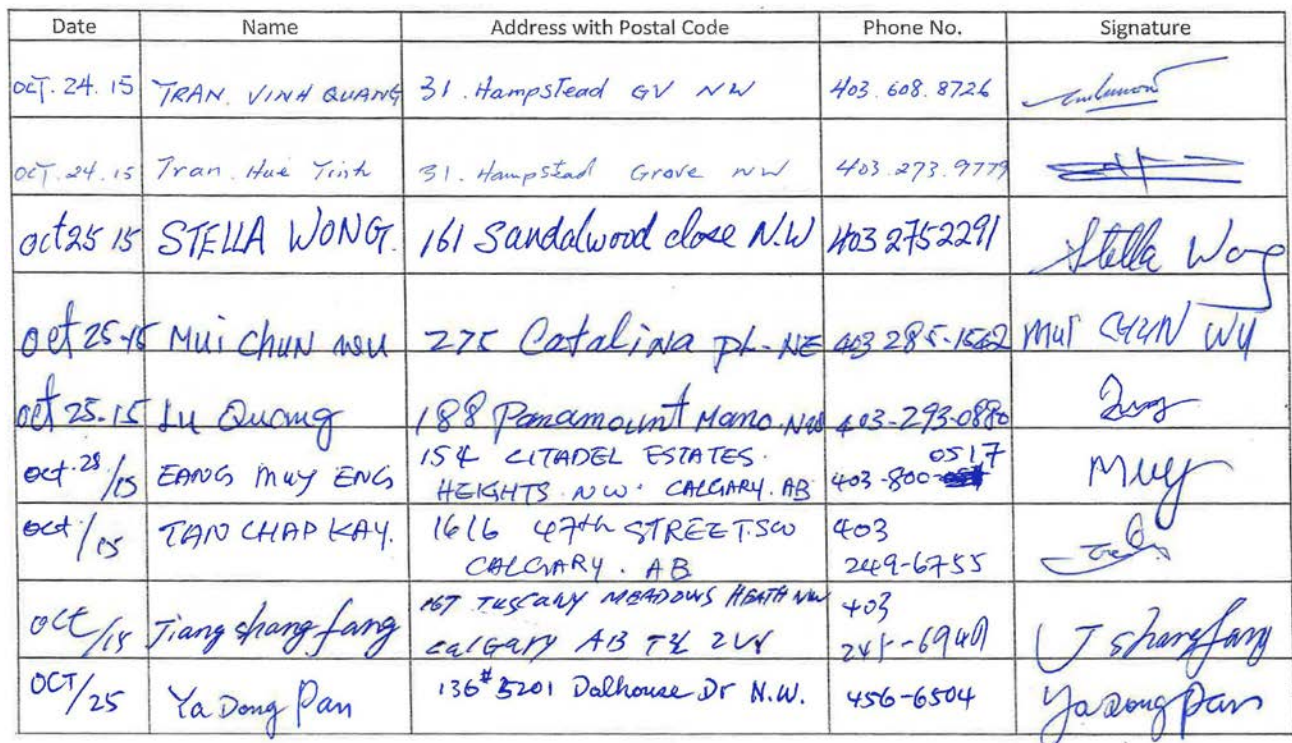 Date Name Address with Postal Code Phone No. Signature
OCT. 24. 15 TRAN. VINH QUANG 31. Hampstead GV NW 403. 608. 8726
OCT. 24. 15 Tran. Hue Tinh 31. Hampstead Grove NW 403. 273. 9779
Oct 25 15 STELLA WONG. 161 Sandalwood close N.W 403 2752291 Stella Wong
Oct 25-15 Mui Chun wu 275 Catalina pl- NE 403 285-1562 Mui CHUN WU
Oct 25-15 Lu Quang 188 Panamount Mano. NW 403-293-0880
154 CITADEL ESTATES. 0517
Oct. 28/15 EANG MUY ENG HEIGHTS. NW. CALGARY. AB 403-800- Muy
Oct/15 TAN CHAP KAY. 1616 47th STREET.SW 403
CALGARY. AB 249-6755
167 TUSCANY MEADOWS HEATH NW 403
Oct/15 Jiang shang fang calGARY AB 6940 J shang fang
OCT/25 Ya Dong Pan 136# 5201 Dalhouse Dr N.W. 456-6504 Ya Dong Pan